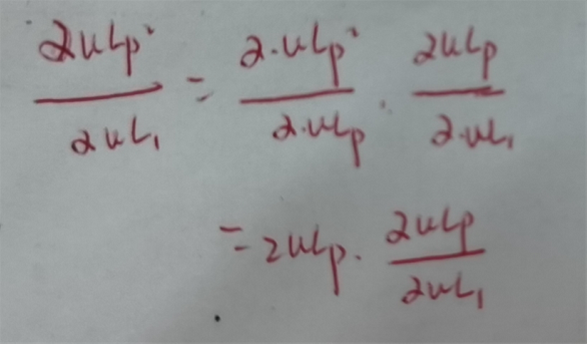 ∂uLp² / ∂uL₁ = ∂·uLp² / ∂·uLp · ∂uLp / ∂·uL₁
= 2uLp · ∂uLp / ∂uL₁